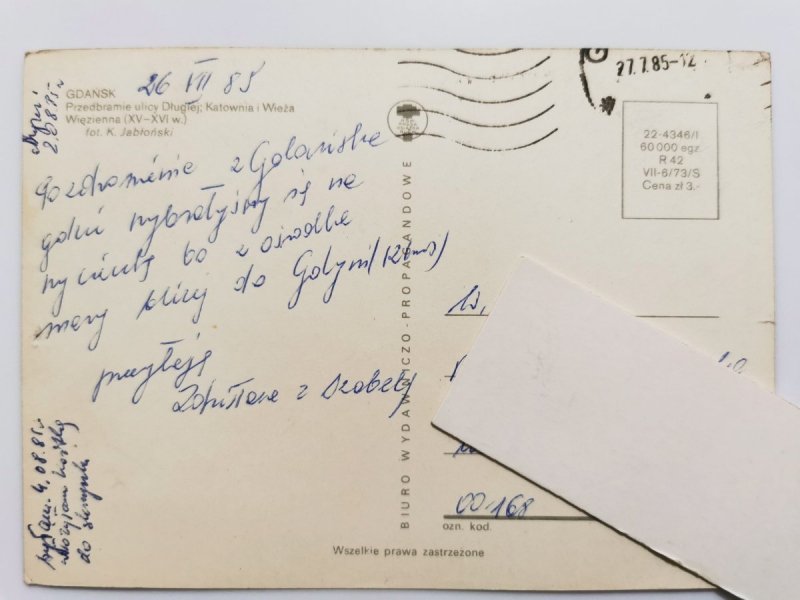 26 VII 85
GDAŃSK
Przedbramie ulicy Długiej; Katownia i Wieża
Więzienna (XV–XVI w.)
fot. K. Jabłoński
Pozdrowienia z Gdańska
gdzie wybrałyśmy się na
wycieczkę bo z ośrodka
mamy bliżej do Gdyni (12 km)
przesyłają
Zdzisława z
27.7.85-12
22-4346/I
60 000 egz.
R 42
VII-6/73/S
Cena zł 3.-
BIURO WYDAWNICZO-PROPAGANDOWE
00-168
ozn. kod.
4.08.85
do
Wszelkie prawa zastrzeżone